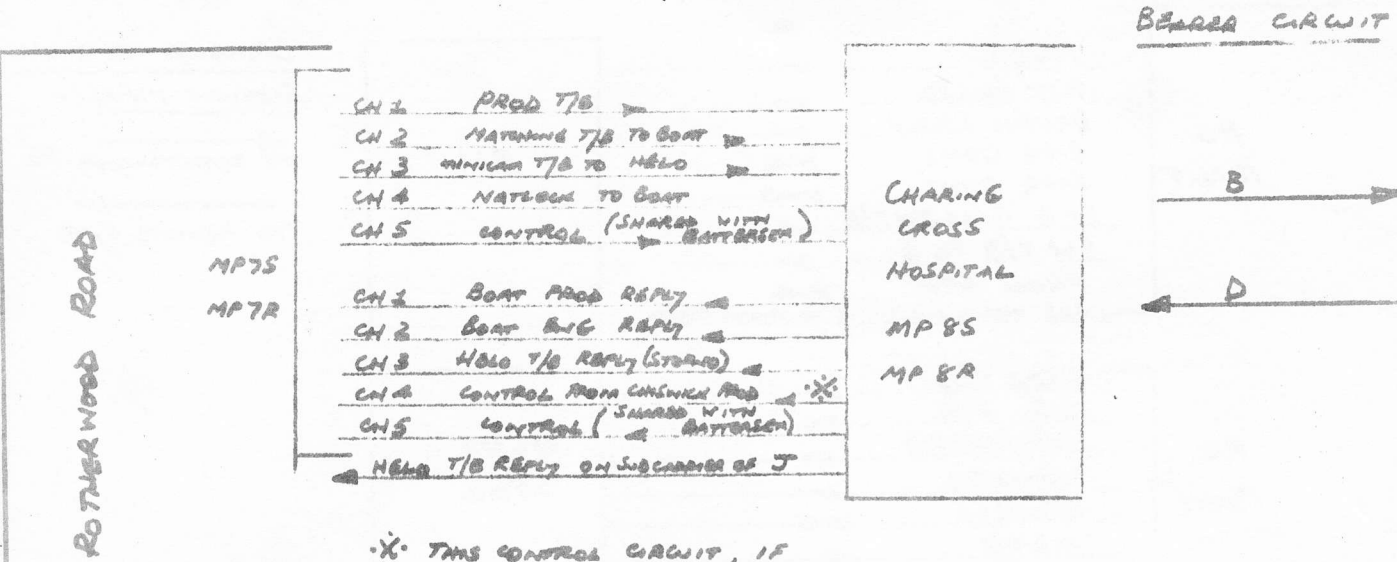 BEARER CIRCUIT
CH 1 PROD T/B
CH 2 MATCHING T/B TO BOAT
CH 3 MINICAM T/B TO HELO
CH 4 NATLOCK TO BOAT
CH 5 CONTROL (SHARED WITH BATTERSEA)
MP7S
MP7R
ROTHERWOOD ROAD
CH 1 BOAT PROD REPLY
CH 2 BOAT ENG REPLY
CH 3 HELO T/B REPLY (STORNO)
CH 4 CONTROL FROM CHISWICK PROD ※
CH 5 CONTROL (SHARED WITH BATTERSEA)
HELO T/B REPLY ON SUBCARRIER OF J
CHARING
CROSS
HOSPITAL
MP 8S
MP 8R
B
D
※ THIS CONTROL CIRCUIT, IF